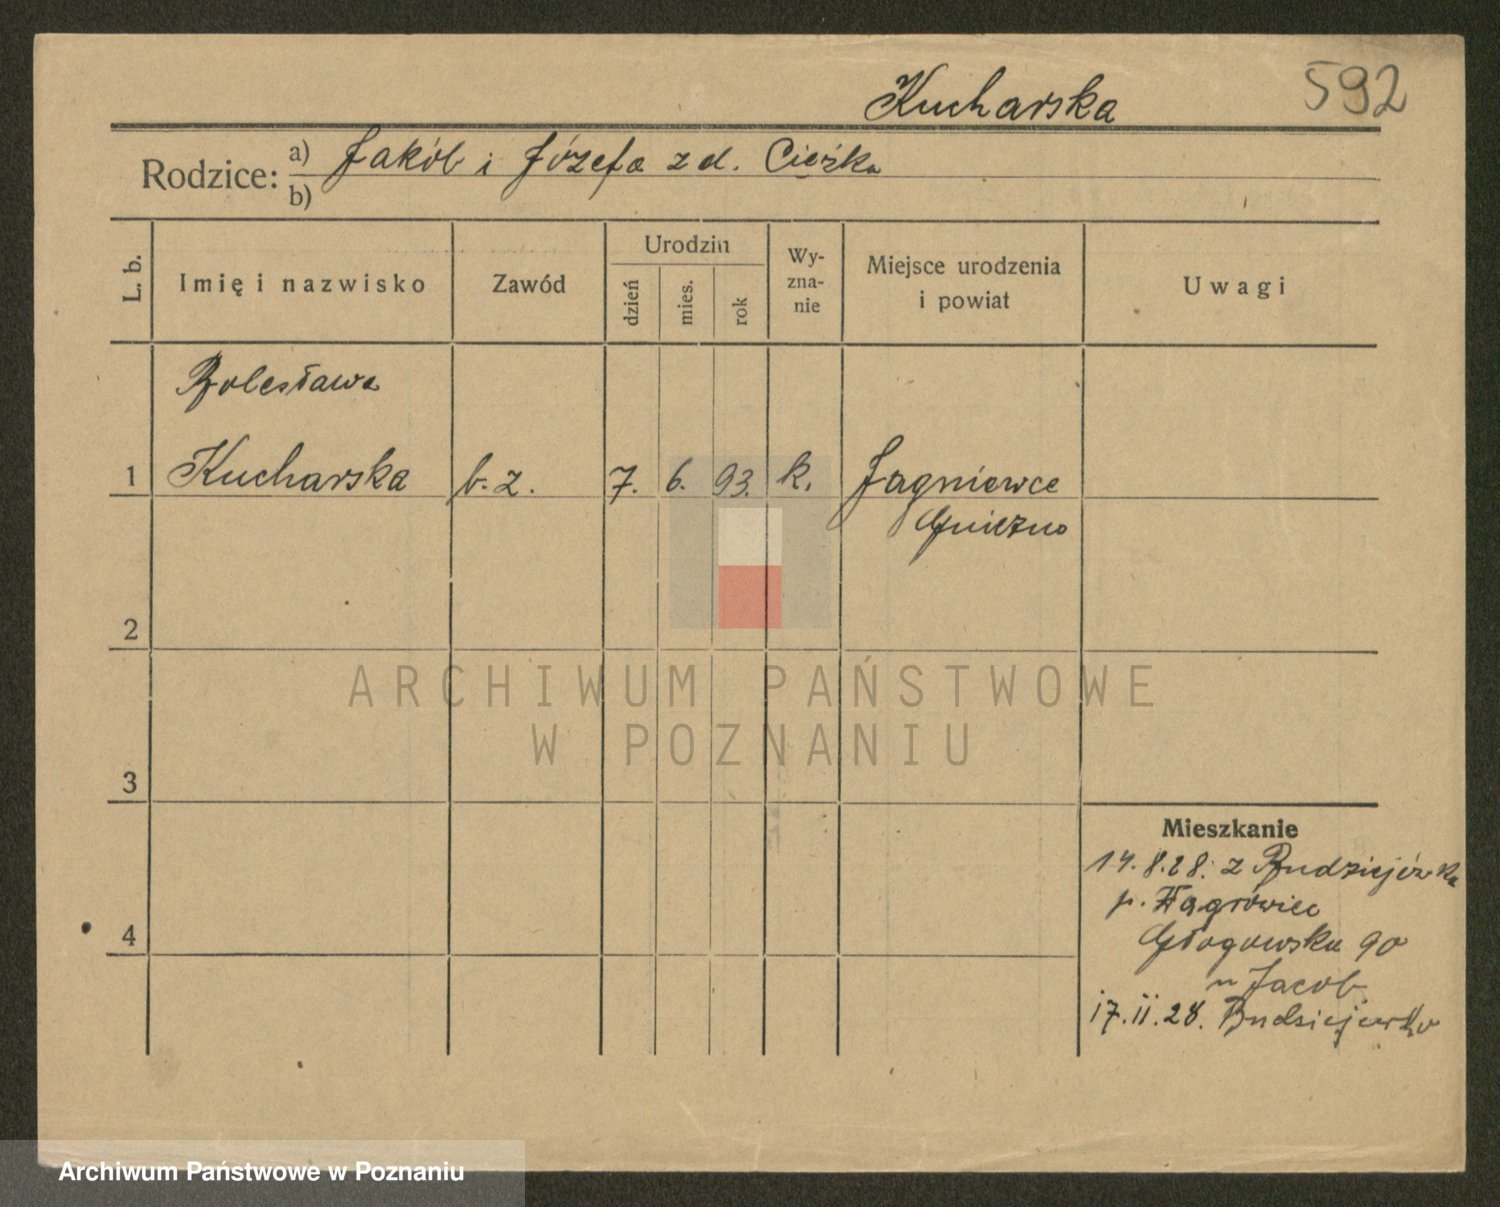 592
Kucharska
Rodzice: a) Jakób i Józefa z d. Cieżka
b)
L. b.
Imię i nazwisko
Zawód
Urodzin
dzień
mies.
rok
Wy-
zna-
nie
Miejsce urodzenia
i powiat
Uwagi
Bolesława
1 Kucharska b. z. 7. 6. 93. k. Jagniewce
Gniezno
2
3
4
Mieszkanie
14.8.28. z Budziejewka
p. Wągrówiec
Głogowska 90
u Jacob
17.11.28. Budziejewko
ARCHIWUM PAŃSTWOWE
W POZNANIU
Archiwum Państwowe w Poznaniu